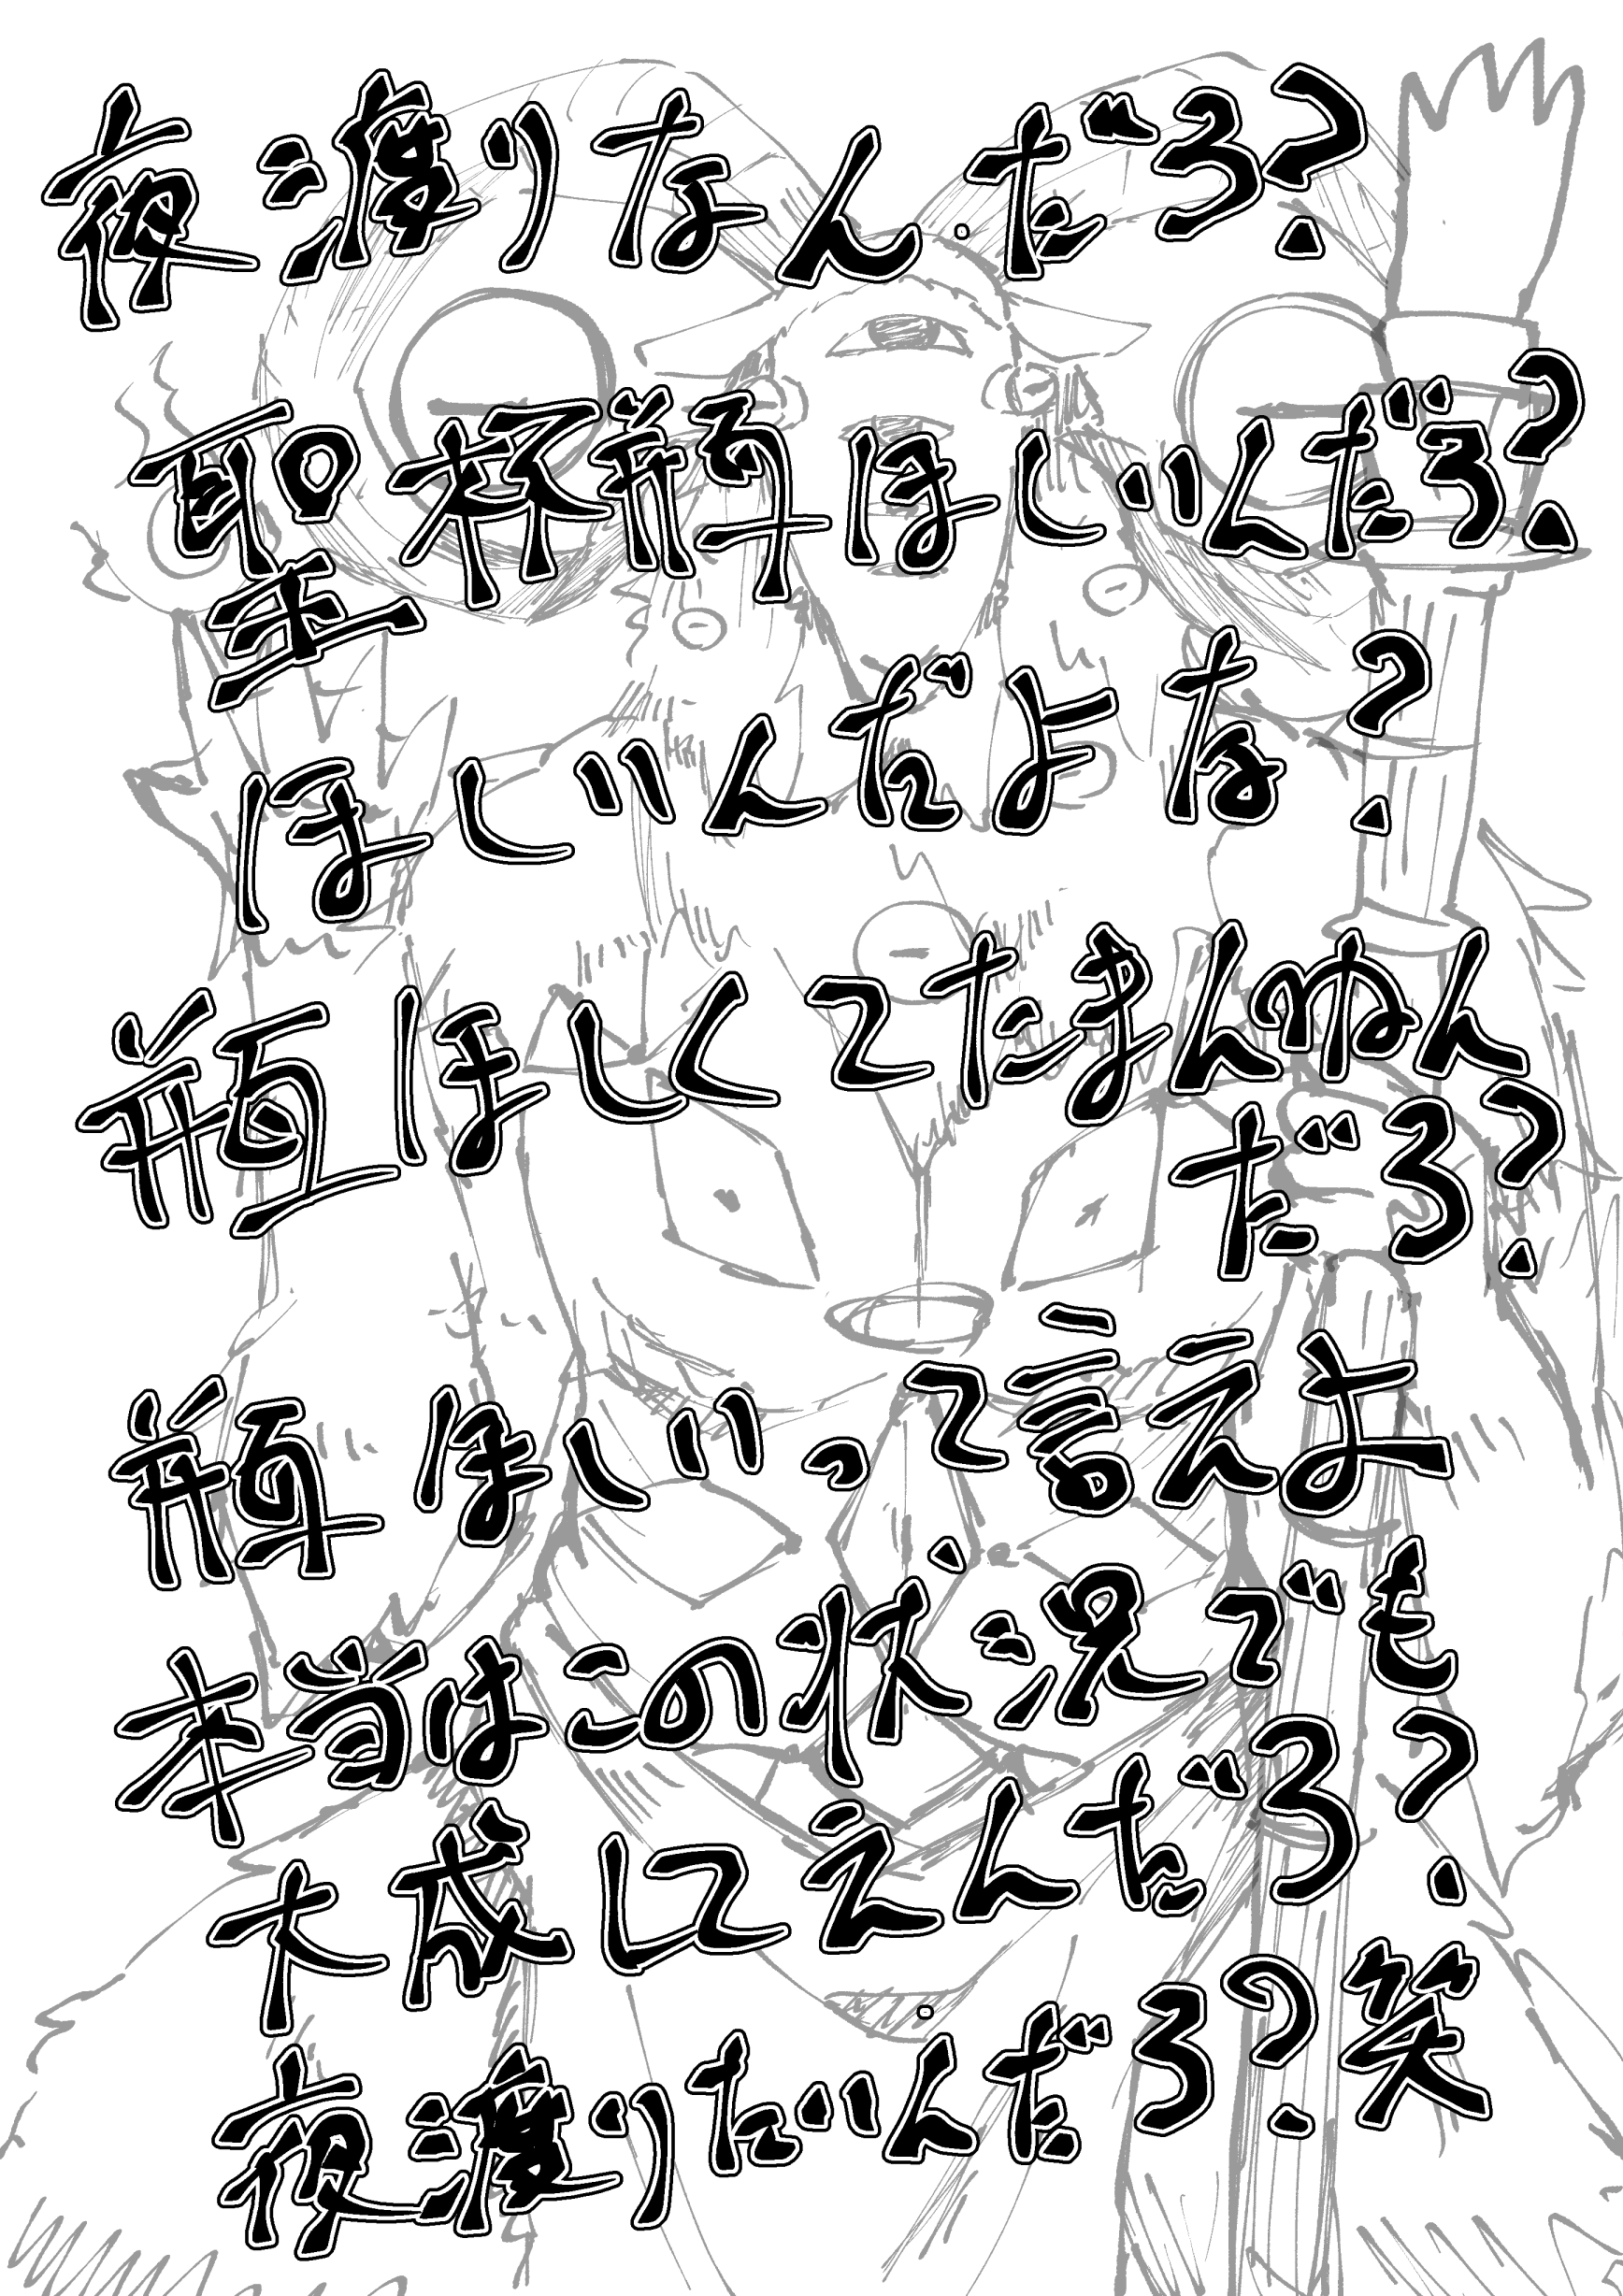 夜渡りなんだろ?
聖杯瓶ほしいんだろ?
ほしいんだよな?
瓶ほしくてたまんねん
だろ?
瓶ほしいって言えよ
本当はこの状況でも
大成してえんだろ?
夜渡りたいんだろ?笑